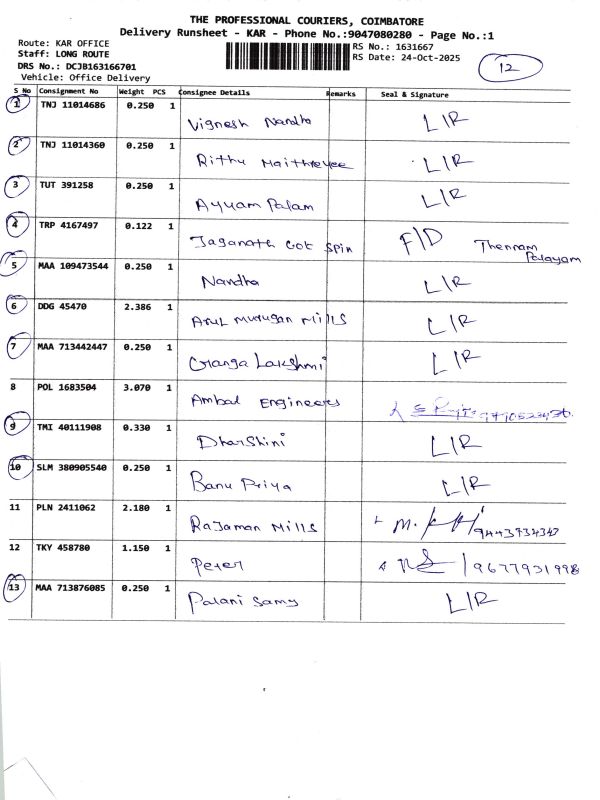 THE PROFESSIONAL COURIERS, COIMBATORE
Delivery Runsheet - KAR - Phone No.:9047080280 - Page No.:1
Route: KAR OFFICE
Staff: LONG ROUTE
DRS No.: DCJB163166701
Vehicle: Office Delivery
RS No.: 1631667
RS Date: 24-Oct-2025
12
S No Consignment No Weight PCS Consignee Details Remarks Seal & Signature
1 TNJ 11014686 0.250 1 Vignesh Nandha L/R
2 TNJ 11014360 0.250 1 Rithu Maithreyee L/R
3 TUT 391258 0.250 1 Ayyam Palam L/R
4 TRP 4167497 0.122 1 Jaganath Got Spin F/D Thennam Palayam
5 MAA 109473544 0.250 1 Nandha L/R
6 DDG 45470 2.386 1 Arul Murugan Mills L/R
7 MAA 713442447 0.250 1 Ganga Lakshmi L/R
8 POL 1683504 3.070 1 Ambal Engineers
9 TMI 40111908 0.330 1 Dharshini L/R
10 SLM 380905540 0.250 1 Banu Priya L/R
11 PLN 2411062 2.180 1 Rajaman Mills
12 TKY 458780 1.150 1 Peter 9677931998
13 MAA 713876085 0.250 1 Palani Samy L/R